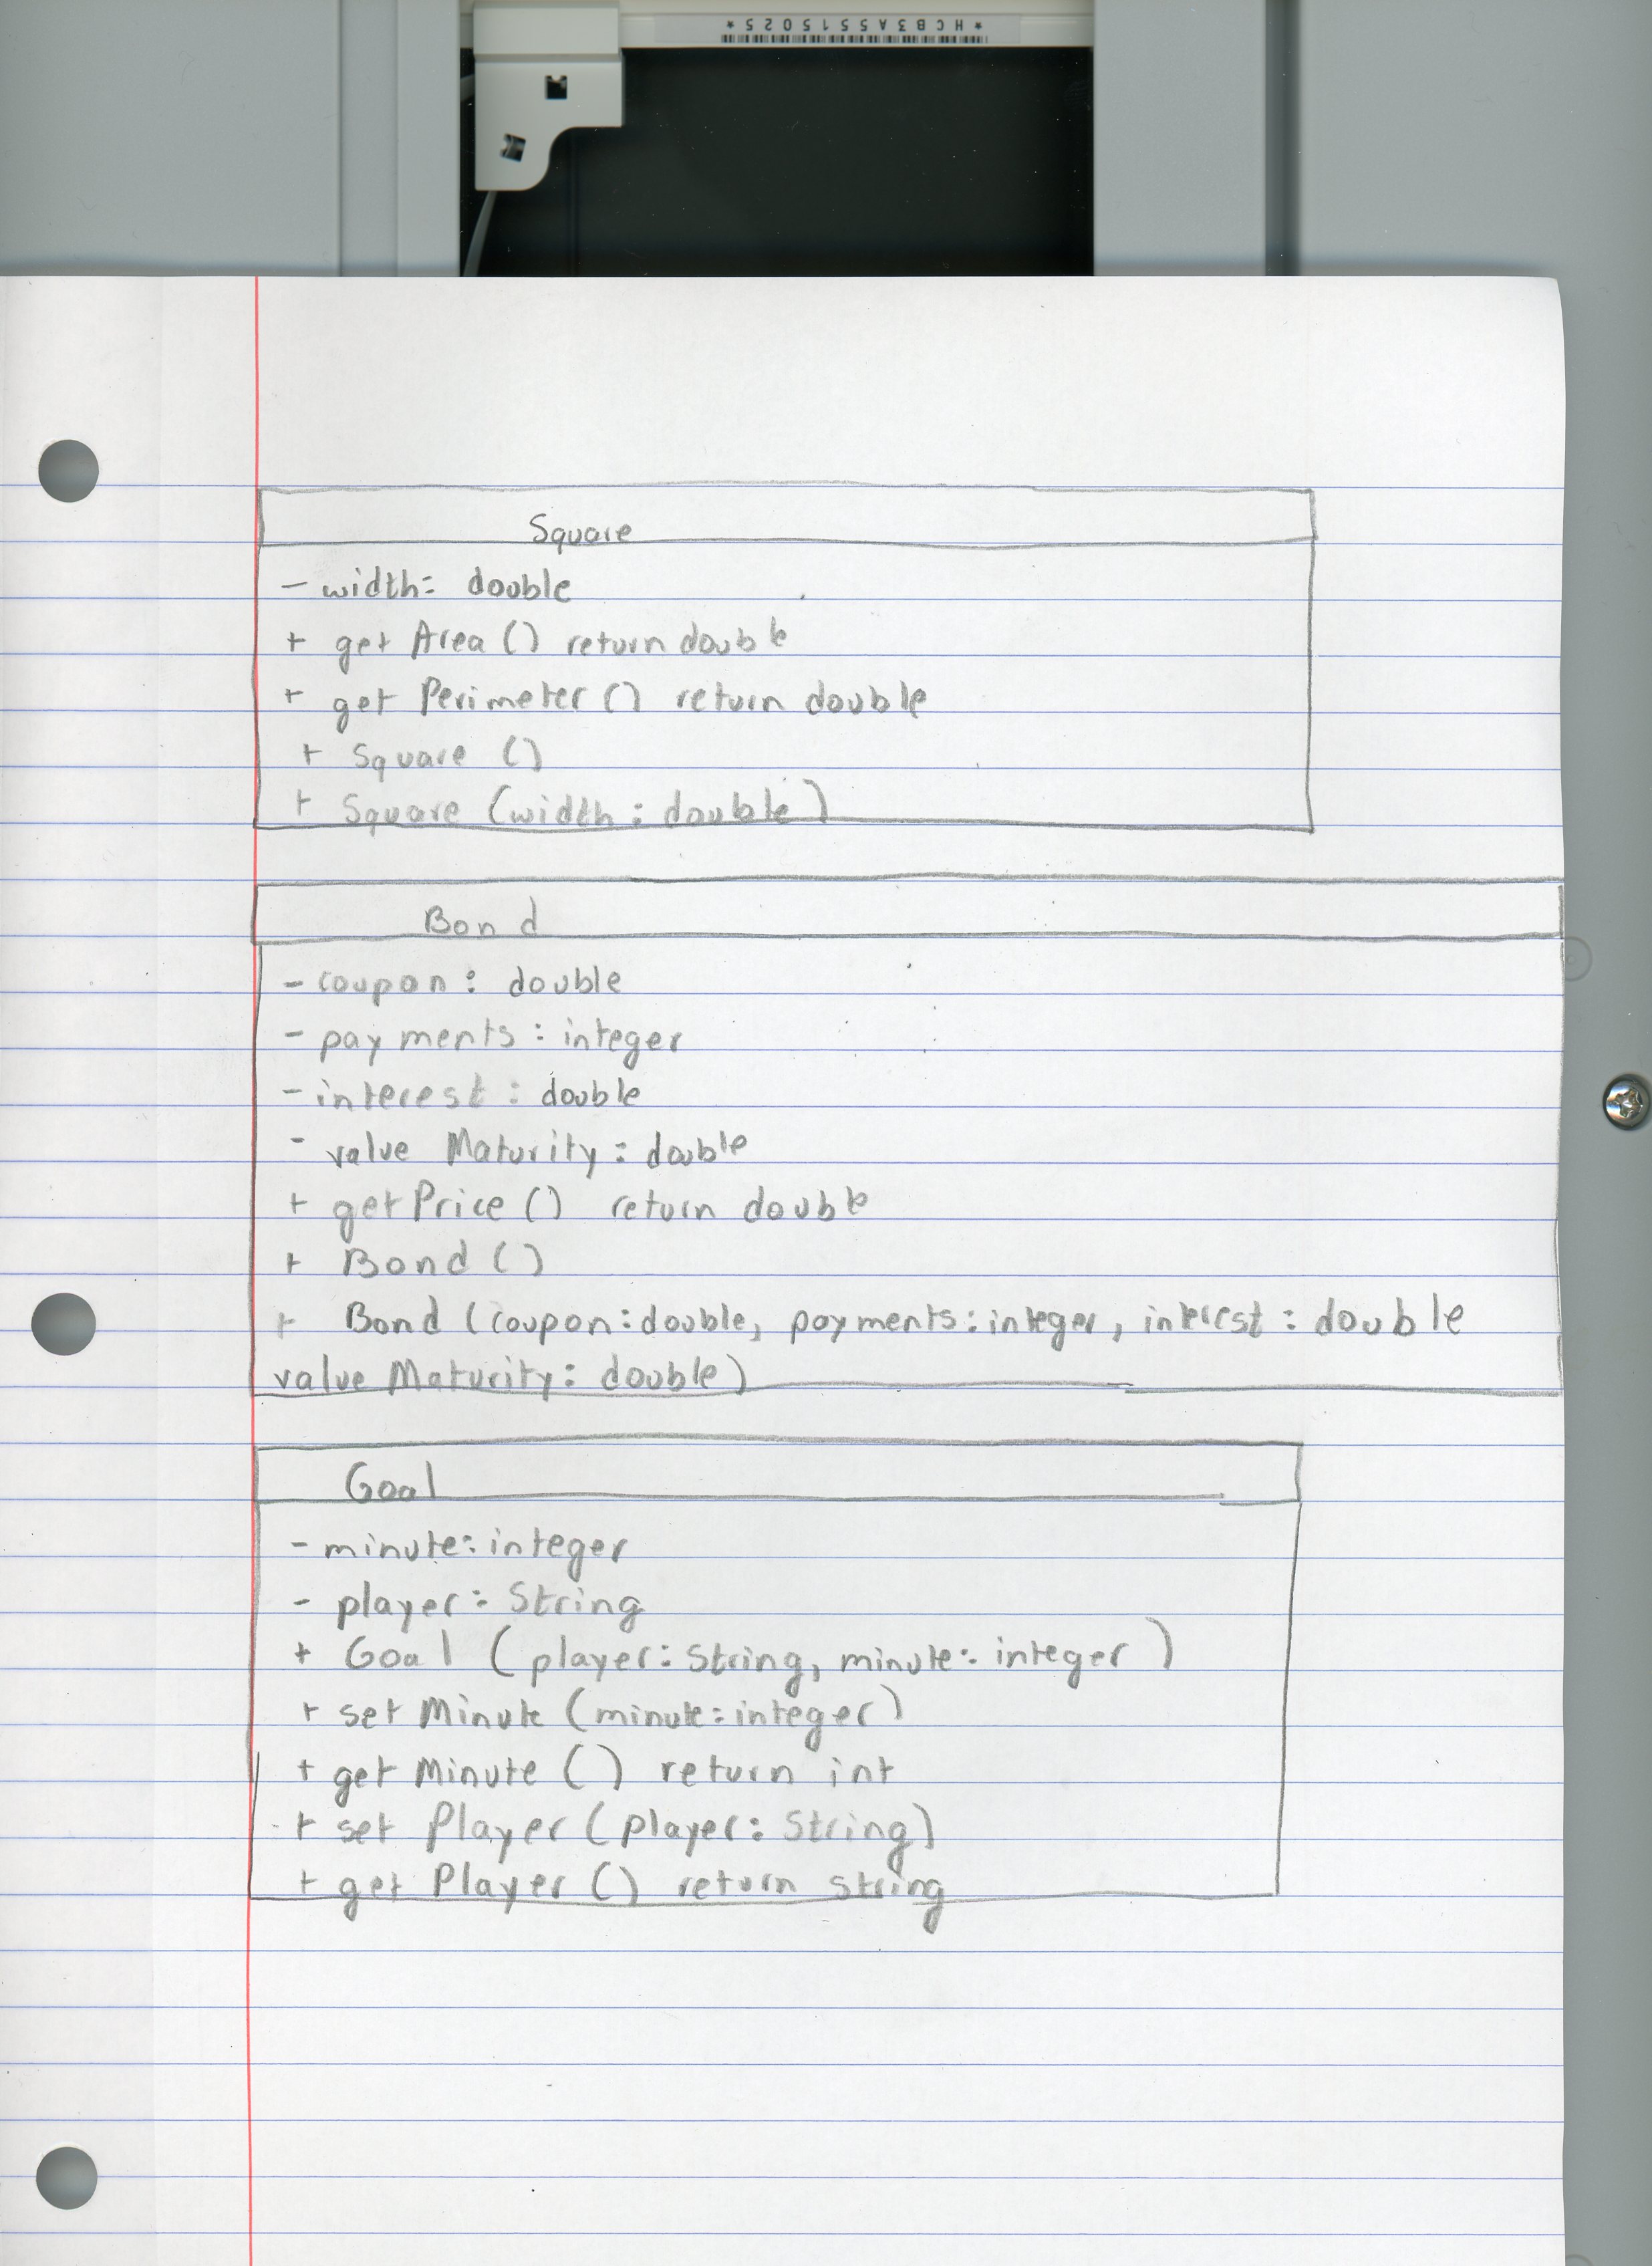 *HCB3A5515025*
Square
- width: double
+ get Area () return double
+ get Perimeter () return double
+ Square ()
+ Square (width: double)
Bond
- coupon: double
- payments: integer
- interest: double
- value Maturity: double
+ getPrice () return double
+ Bond ()
+ Bond (coupon:double, payments:integer, interest: double
value Maturity: double)
Goal
- minute: integer
- player: String
+ Goal (player: String, minute: integer)
+ set Minute (minute: integer)
+ get Minute () return int
+ set Player (player: String)
+ get Player () return string